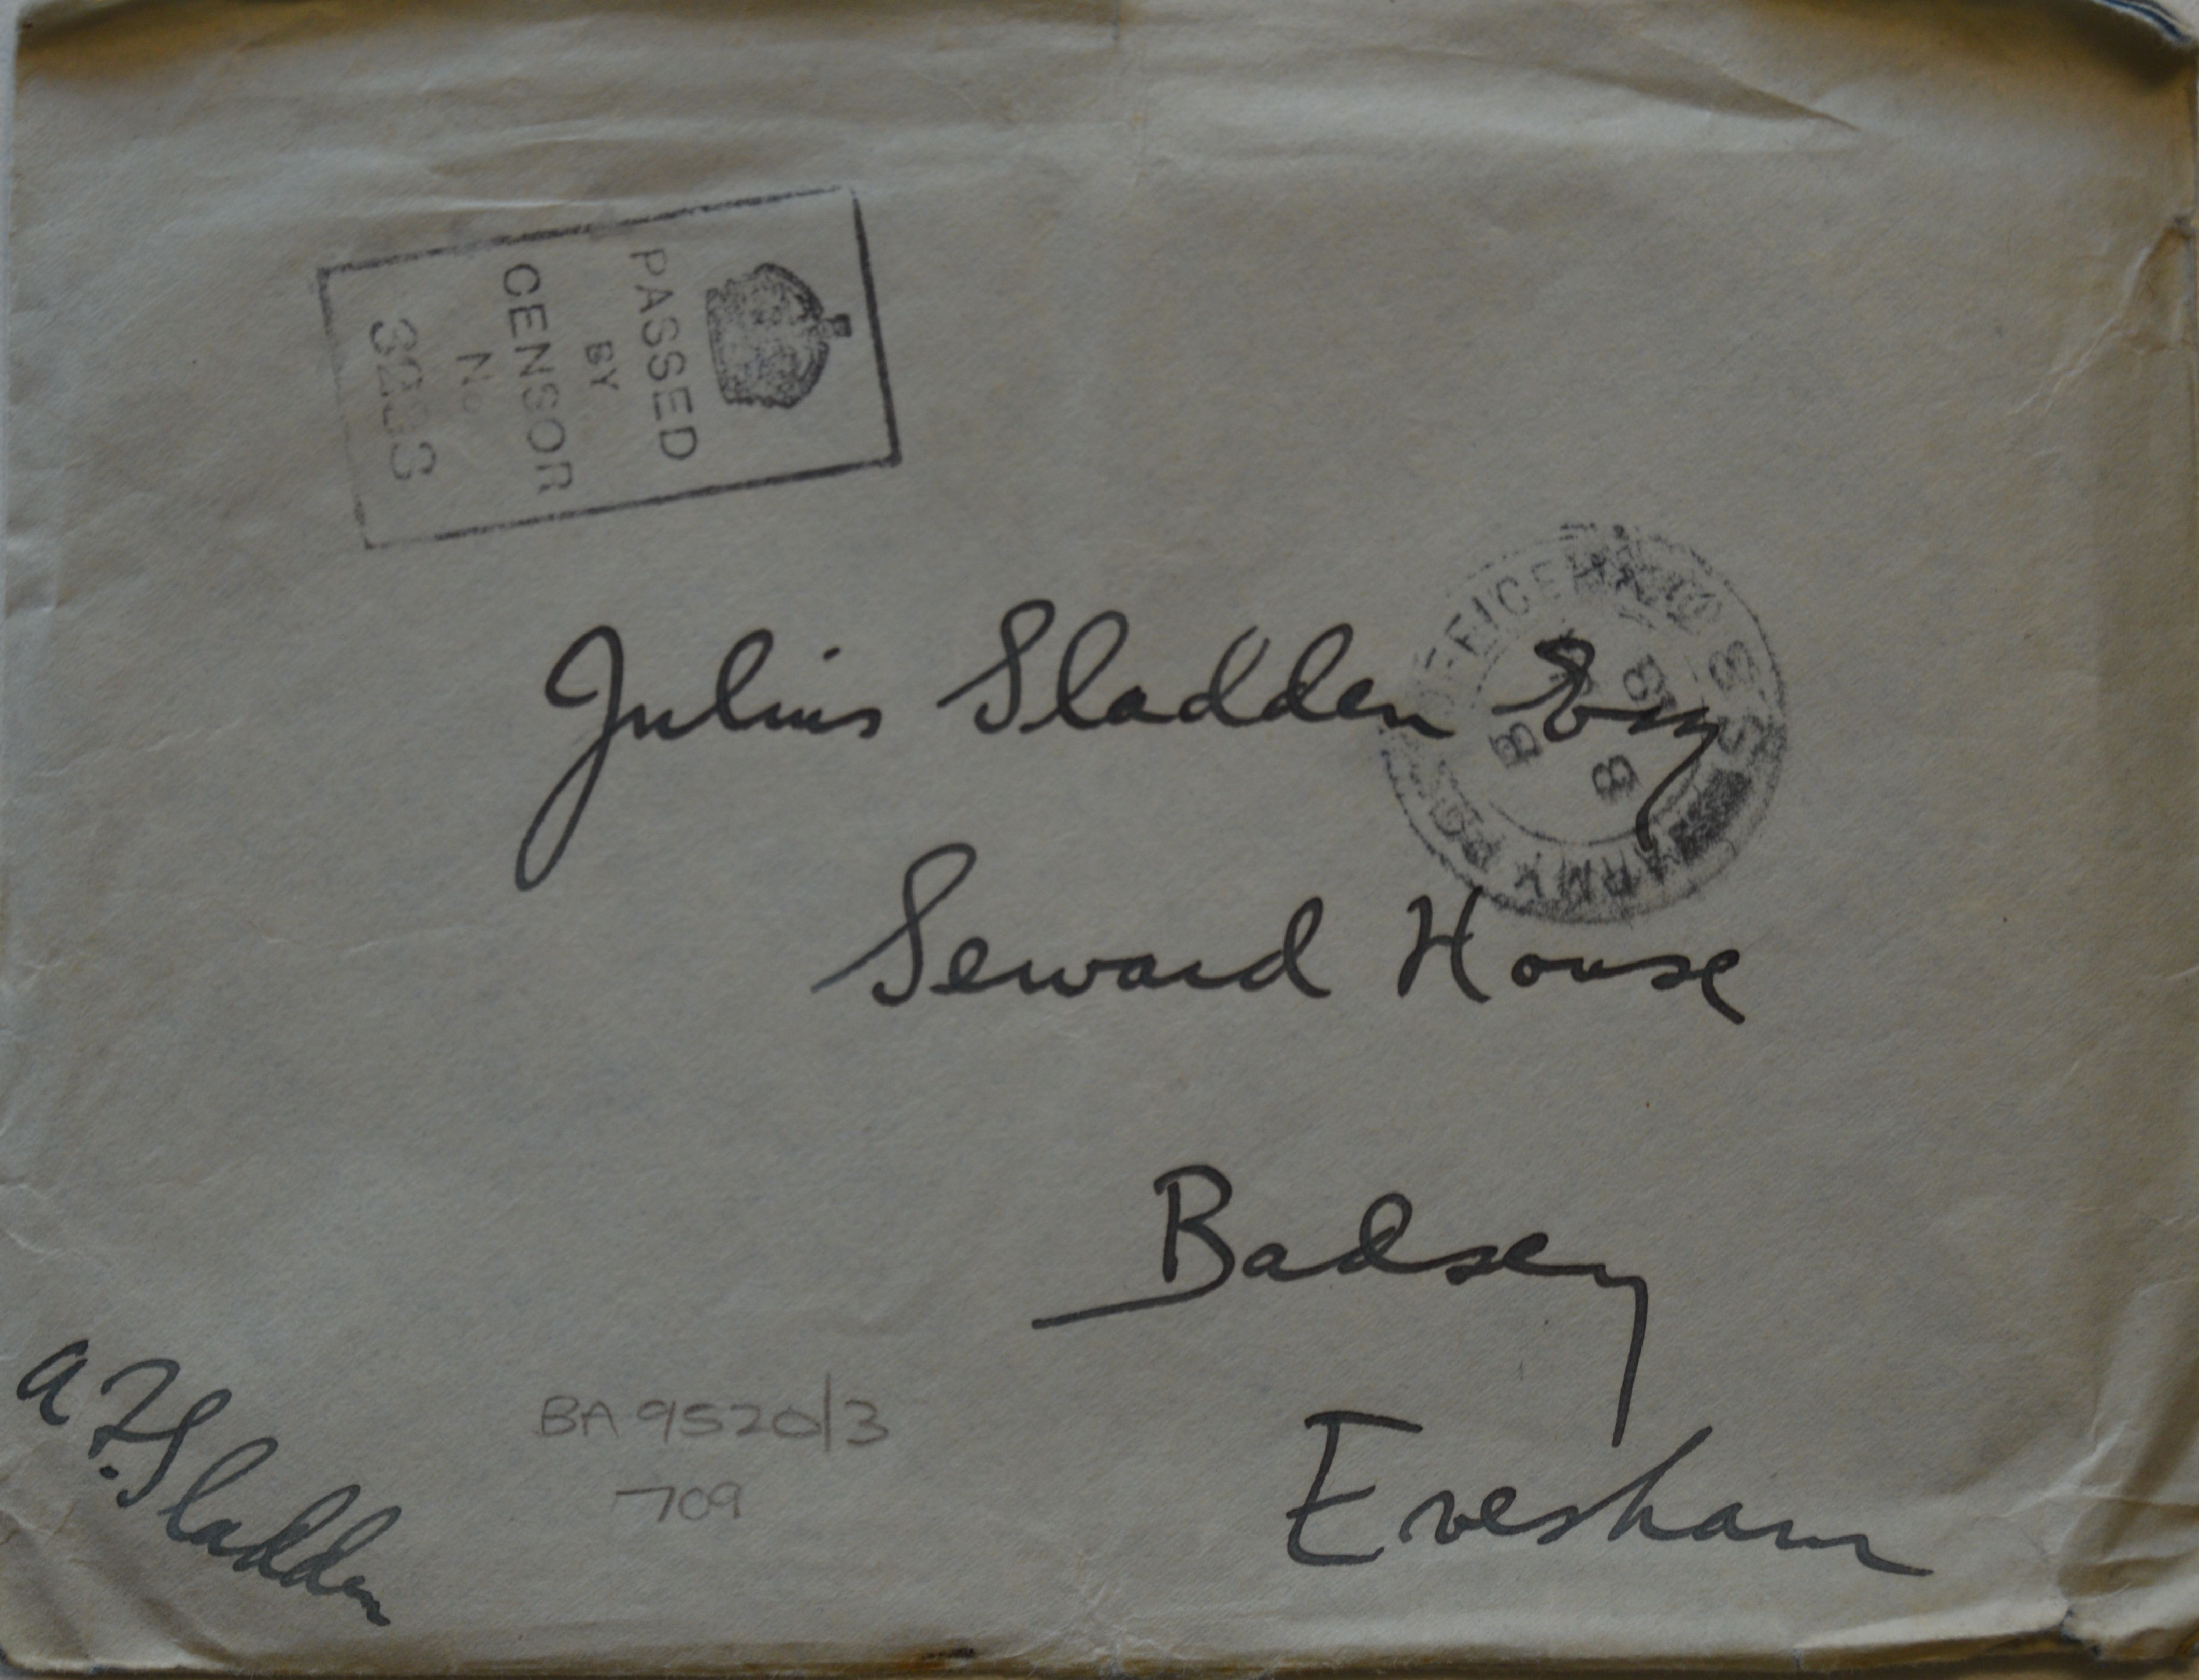 PASSED
BY
CENSOR
No.
ARMY OFFICE
Julius Sladden Esq
Seward House
Badsey
Evesham
A F. Sladden
BA 9520/3
709